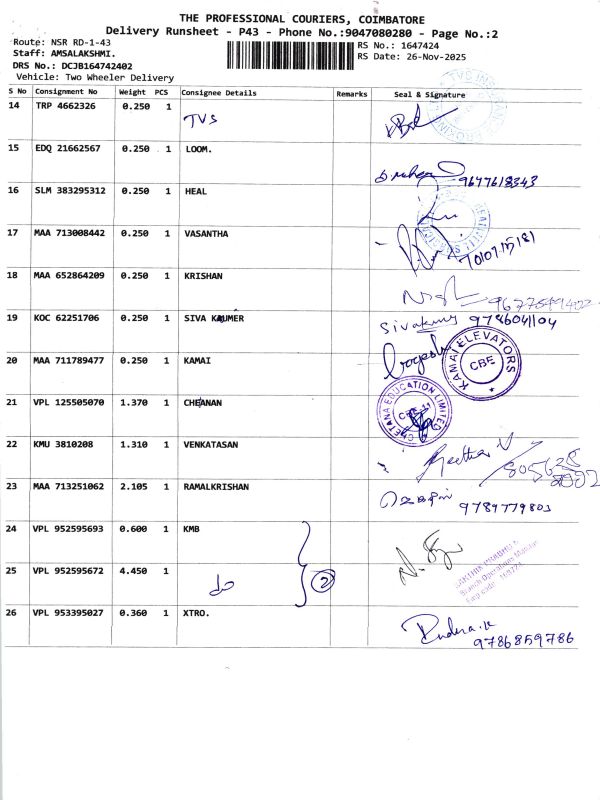 THE PROFESSIONAL COURIERS, COIMBATORE
Delivery Runsheet - P43 - Phone No.:9047080280 - Page No.:2
Route: NSR RD-1-43
Staff: AMSALAKSHMI.
DRS No.: DCJB164742402
Vehicle: Two Wheeler Delivery
RS No.: 1647424
RS Date: 26-Nov-2025
S No Consignment No Weight PCS Consignee Details Remarks Seal & Signature
14 TRP 4662326 0.250 1 TVS
15 EDQ 21662567 0.250 1 LOOM.
9677618343
16 SLM 383295312 0.250 1 HEAL
17 MAA 713008442 0.250 1 VASANTHA
18 MAA 652864209 0.250 1 KRISHAN
19 KOC 62251706 0.250 1 SIVA KUMER
Sivakumy 9786041104
20 MAA 711789477 0.250 1 KAMAI
KAMAI ELEVATORS
CBE
21 VPL 125505070 1.370 1 CHEANAN
CHETANA EDUCATION LIMITED
22 KMU 3810208 1.310 1 VENKATASAN
23 MAA 713251062 2.105 1 RAMALKRISHAN
9789779803
24 VPL 952595693 0.600 1 KMB
25 VPL 952595672 4.450 1 do
2
Branch Operations Manager
26 VPL 953395027 0.360 1 XTRO.
9786859786